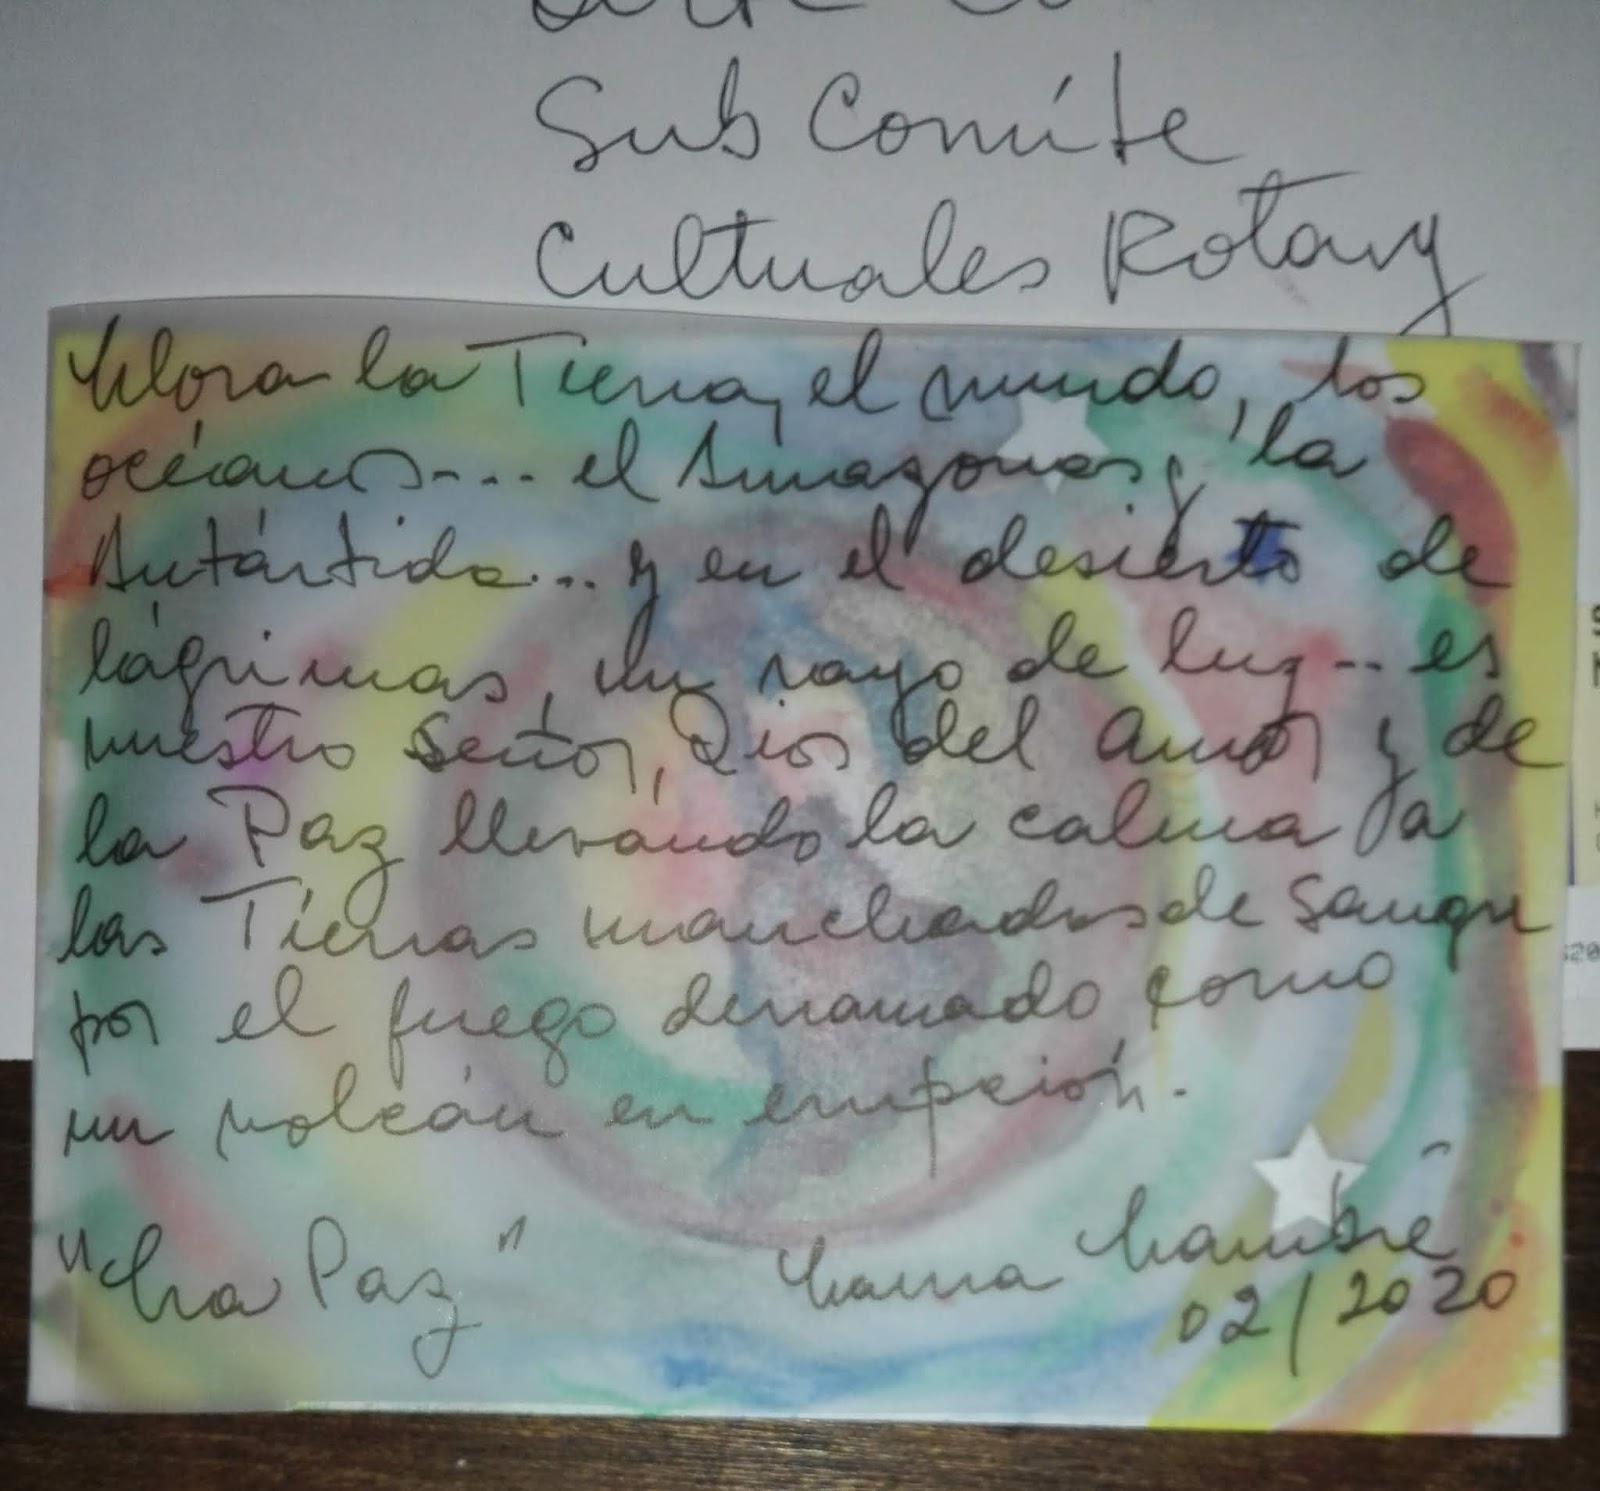 Sub Comíte
Cultuales Rotary
Llora la Tierra, el mundo, los
océanos.... el Amazonas, la
Antártida... y en el desierto de
lágrimas, un rayo de luz.. es
nuestro Señor, Dios del amor y de
la Paz llevando la calma a
las Tierras manchadas de Sangre
por el fuego derramado como
un volcán en erupción.
"La Paz"
02/2020